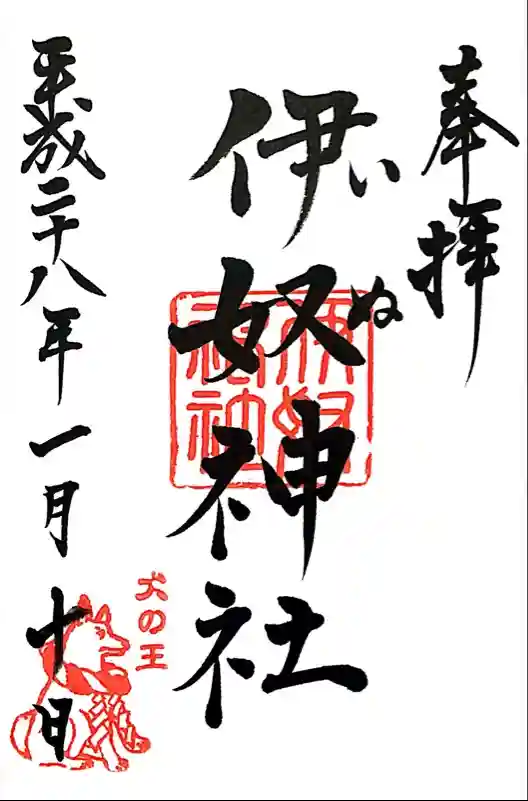 奉拝
伊奴神社
いぬ
伊奴神社
平成二十八年一月十日
犬の王